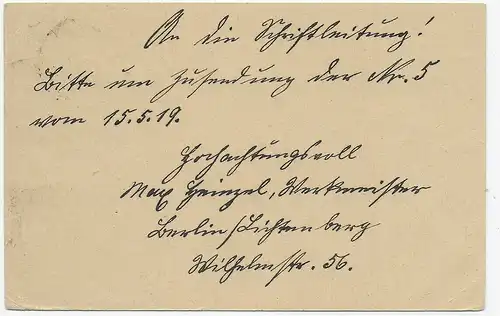 An die Schriftleitung!
Bitte um Zusendung der Nr. 5
vom 15.5.19.
Hochachtungsvoll
Max Heinzel, Werkmeister
Berlin/Lichtenberg
Wilhelmstr. 56.